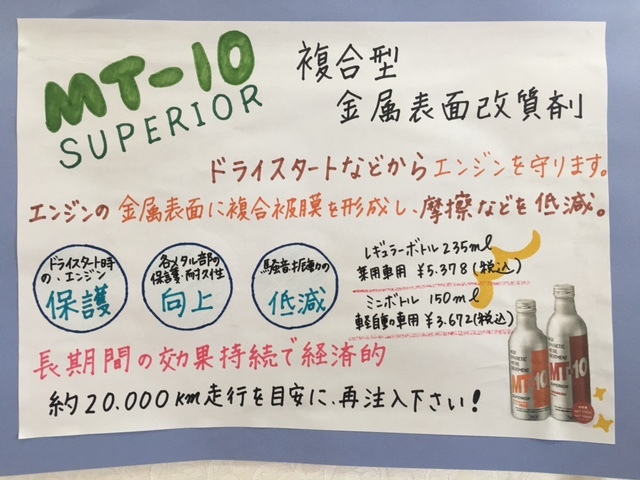 MT-10
SUPERIOR
複合型
金属表面改質剤
ドライスタートなどからエンジンを守ります。
エンジンの金属表面に複合被膜を形成し、摩擦などを低減。
ドライスタート時
の、エンジン
保護
各メタル部の
保護・耐久性
向上
騒音・振動の
低減
レギュラーボトル 235ml
乗用車用 ¥5.378(税込)
ミニボトル 150ml
軽自動車用 ¥3.672(税込)
長期間の効果持続で経済的
約20.000km走行を目安に、再注入下さい!
MT-10
MT-10